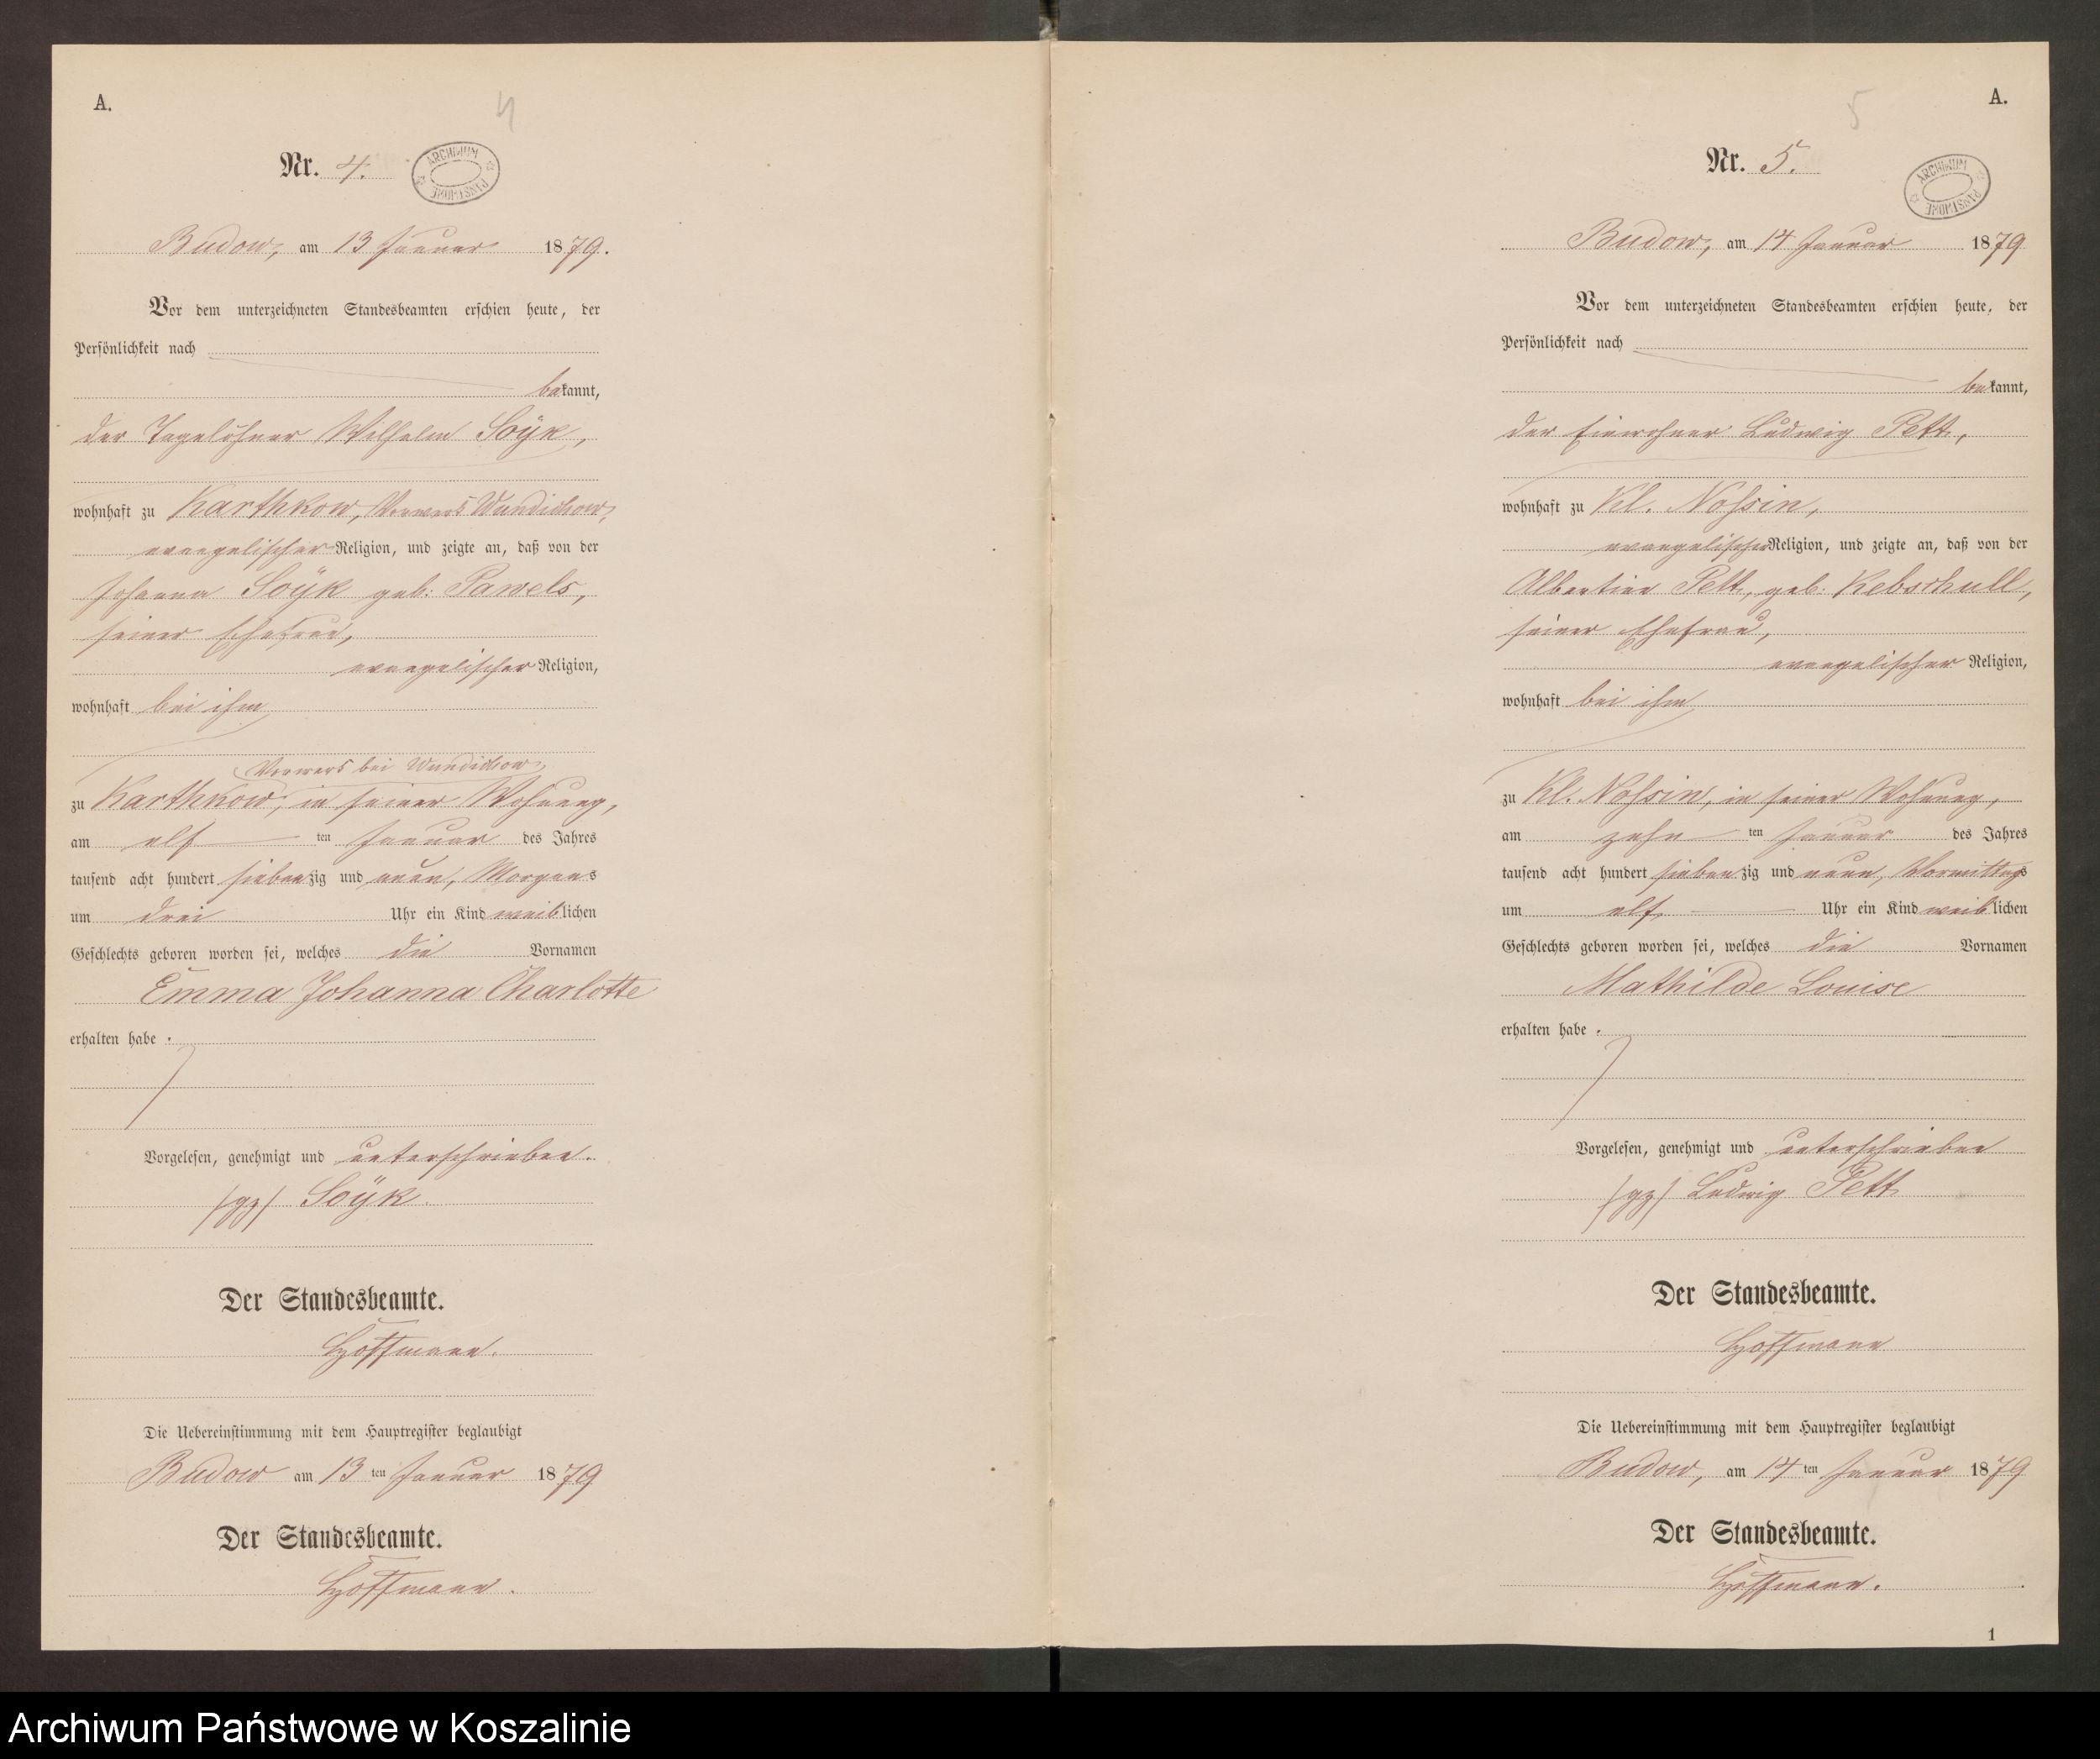 A.
4
Nr. 4.
ARCHIWUM PAŃSTWOWE
Budow, am 13 Januar 1879.
Vor dem unterzeichneten Standesbeamten erschien heute, der
Persönlichkeit nach
bekannt,
der Tagelöhner Wilhelm Soÿk,
wohnhaft zu Karthkow, Vorwerk Wundichow,
evangelischer Religion, und zeigte an, daß von der
Johanna Soÿk geb: Pawels,
seiner Ehefrau,
evangelischer Religion,
wohnhaft bei ihm
Vorwerk bei Wundichow,
zu Karthkow, in seiner Wohnung,
am elf ten Januar des Jahres
tausend acht hundert siebenzig und neun, Morgens
um drei Uhr ein Kind weiblichen
Geschlechts geboren worden sei, welches die Vornamen
Emma Johanna Charlotte
erhalten habe.
Vorgelesen, genehmigt und unterschrieben.
/gz/ Soÿk.
Der Standesbeamte.
Hoffmann.
Die Uebereinstimmung mit dem Hauptregister beglaubigt
Budow am 13ten Januar 1879
Der Standesbeamte.
Hoffmann.
5
A.
Nr. 5.
ARCHIWUM PAŃSTWOWE
Budow, am 14 Januar 1879
Vor dem unterzeichneten Standesbeamten erschien heute, der
Persönlichkeit nach
bekannt,
der Einwohner Ludwig Pett,
wohnhaft zu Kl. Nossin,
evangelischer Religion, und zeigte an, daß von der
Albertine Pett, geb: Kebschull,
seiner Ehefrau,
evangelischer Religion,
wohnhaft bei ihm
zu Kl. Nossin, in seiner Wohnung,
am zehn ten Januar des Jahres
tausend acht hundert siebenzig und neun, Vormittags
um elf Uhr ein Kind weiblichen
Geschlechts geboren worden sei, welches die Vornamen
Mathilde Louise
erhalten habe.
Vorgelesen, genehmigt und unterschrieben
/gz/ Ludwig Pett
Der Standesbeamte.
Hoffmann
Die Uebereinstimmung mit dem Hauptregister beglaubigt
Budow, am 14ten Januar 1879
Der Standesbeamte.
Hoffmann.
1
Archiwum Państwowe w Koszalinie